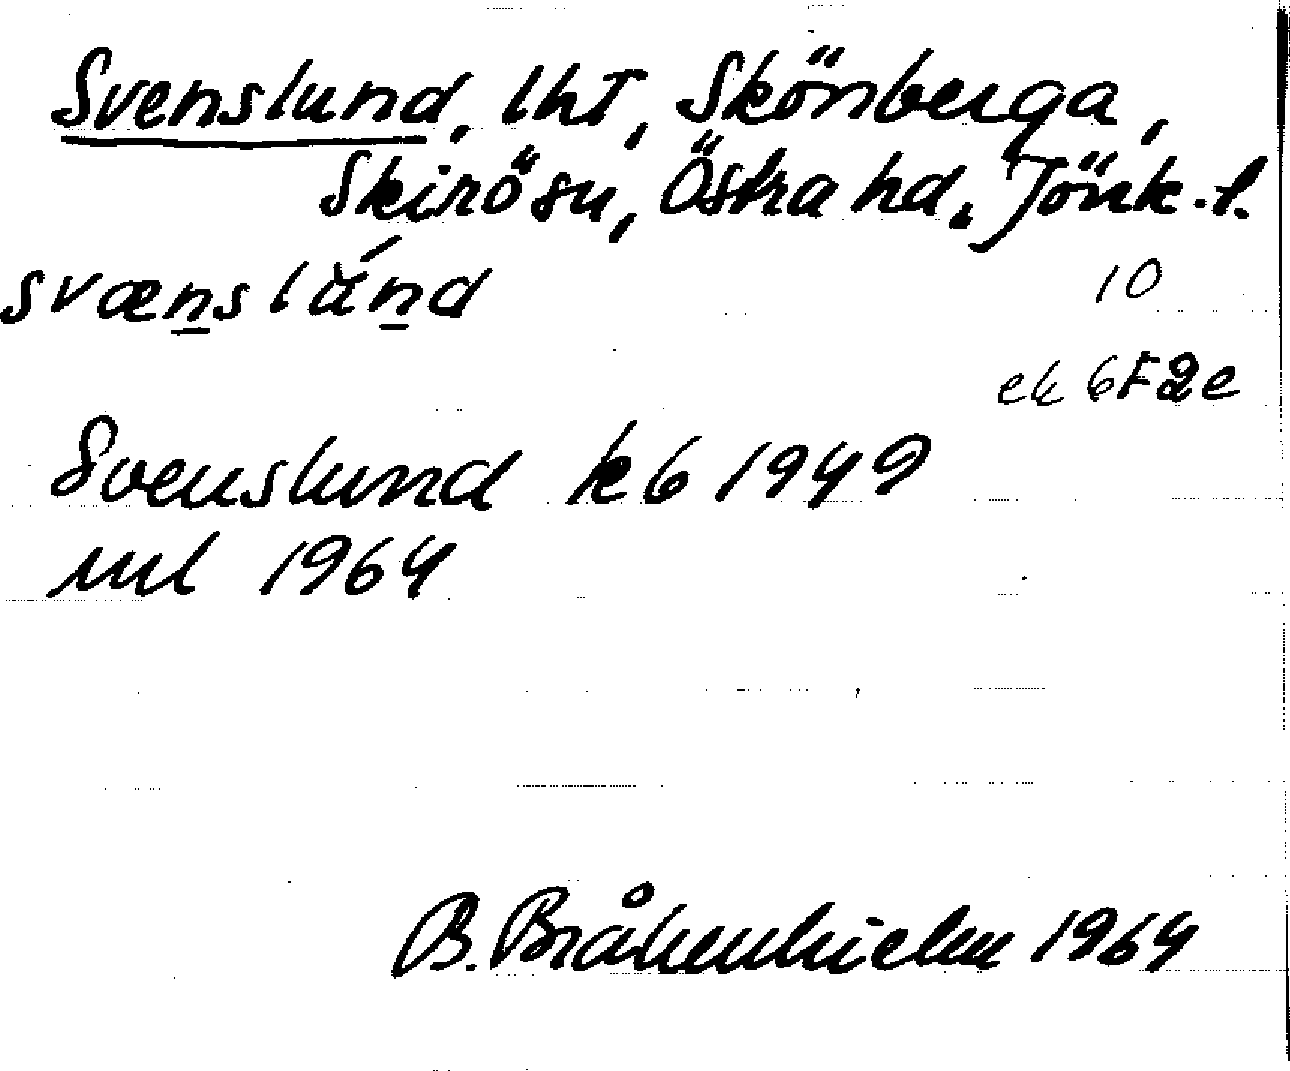 Svenslund, lht, Skönberga,
Skirösn, Östra hd. Jönk. l.
svænslánd 10
ek 6F2e
Svenslund k6 1949
ml 1964
B. Bråkenhielm 1964